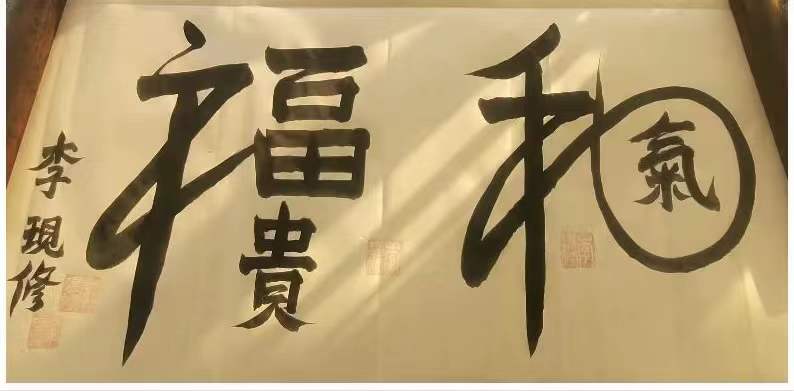 和氣
福貴
李現修